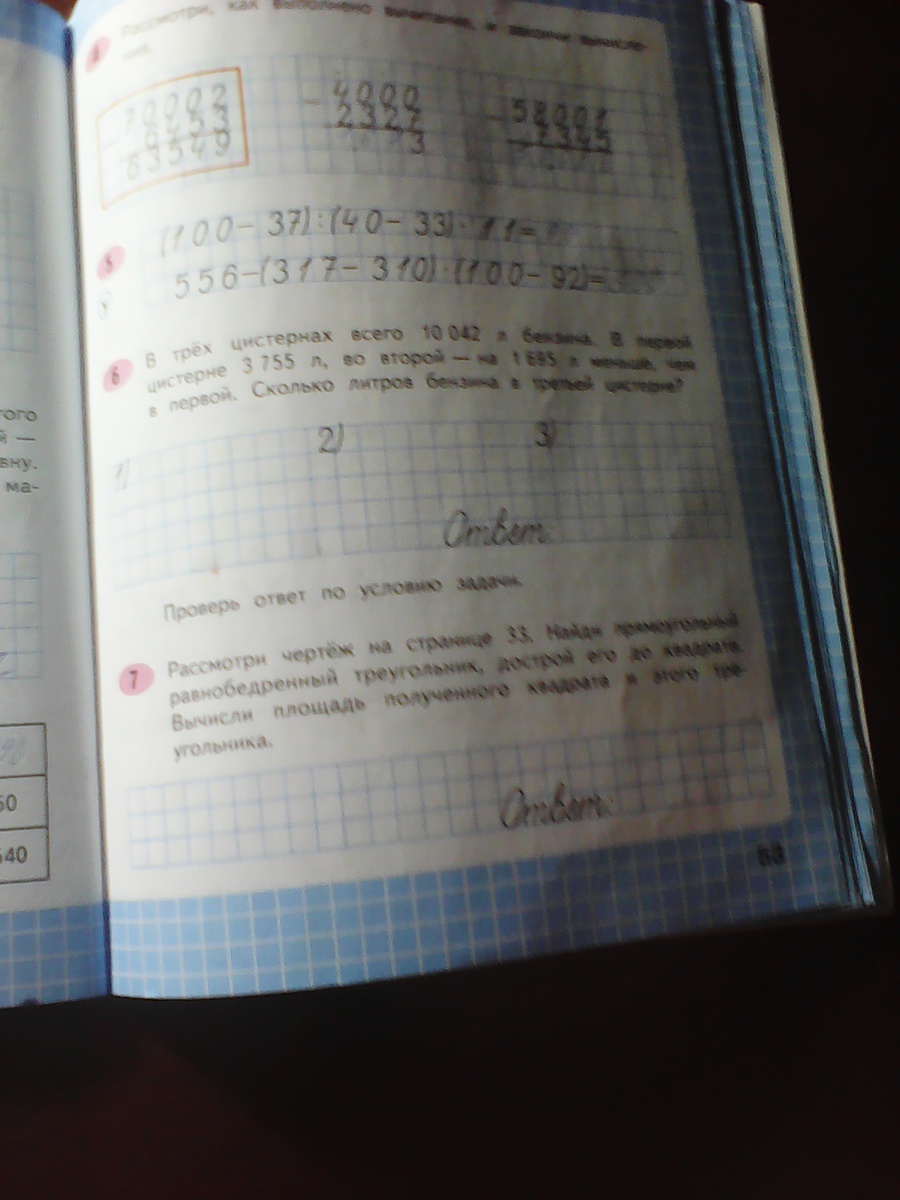 4 Рассмотри, как выполнено вычитание, и закончи вычисле-
ния.
70002 − 4000 − 58001
− 6453 2327 7345
63549 3
5 (100 − 37) : (40 − 33) · 11 =
556 − (317 − 310) · (100 − 92) =
6 В трёх цистернах всего 10 042 л бензина. В первой
цистерне 3 755 л, во второй — на 1 695 л меньше, чем
в первой. Сколько литров бензина в третьей цистерне?
1) 2) 3)
Ответ:
Проверь ответ по условию задачи.
7 Рассмотри чертёж на странице 33. Найди прямоугольный
равнобедренный треугольник, дострой его до квадрата.
Вычисли площадь полученного квадрата и этого тре-
угольника.
Ответ:
того
й —
вну.
ма-
50
540